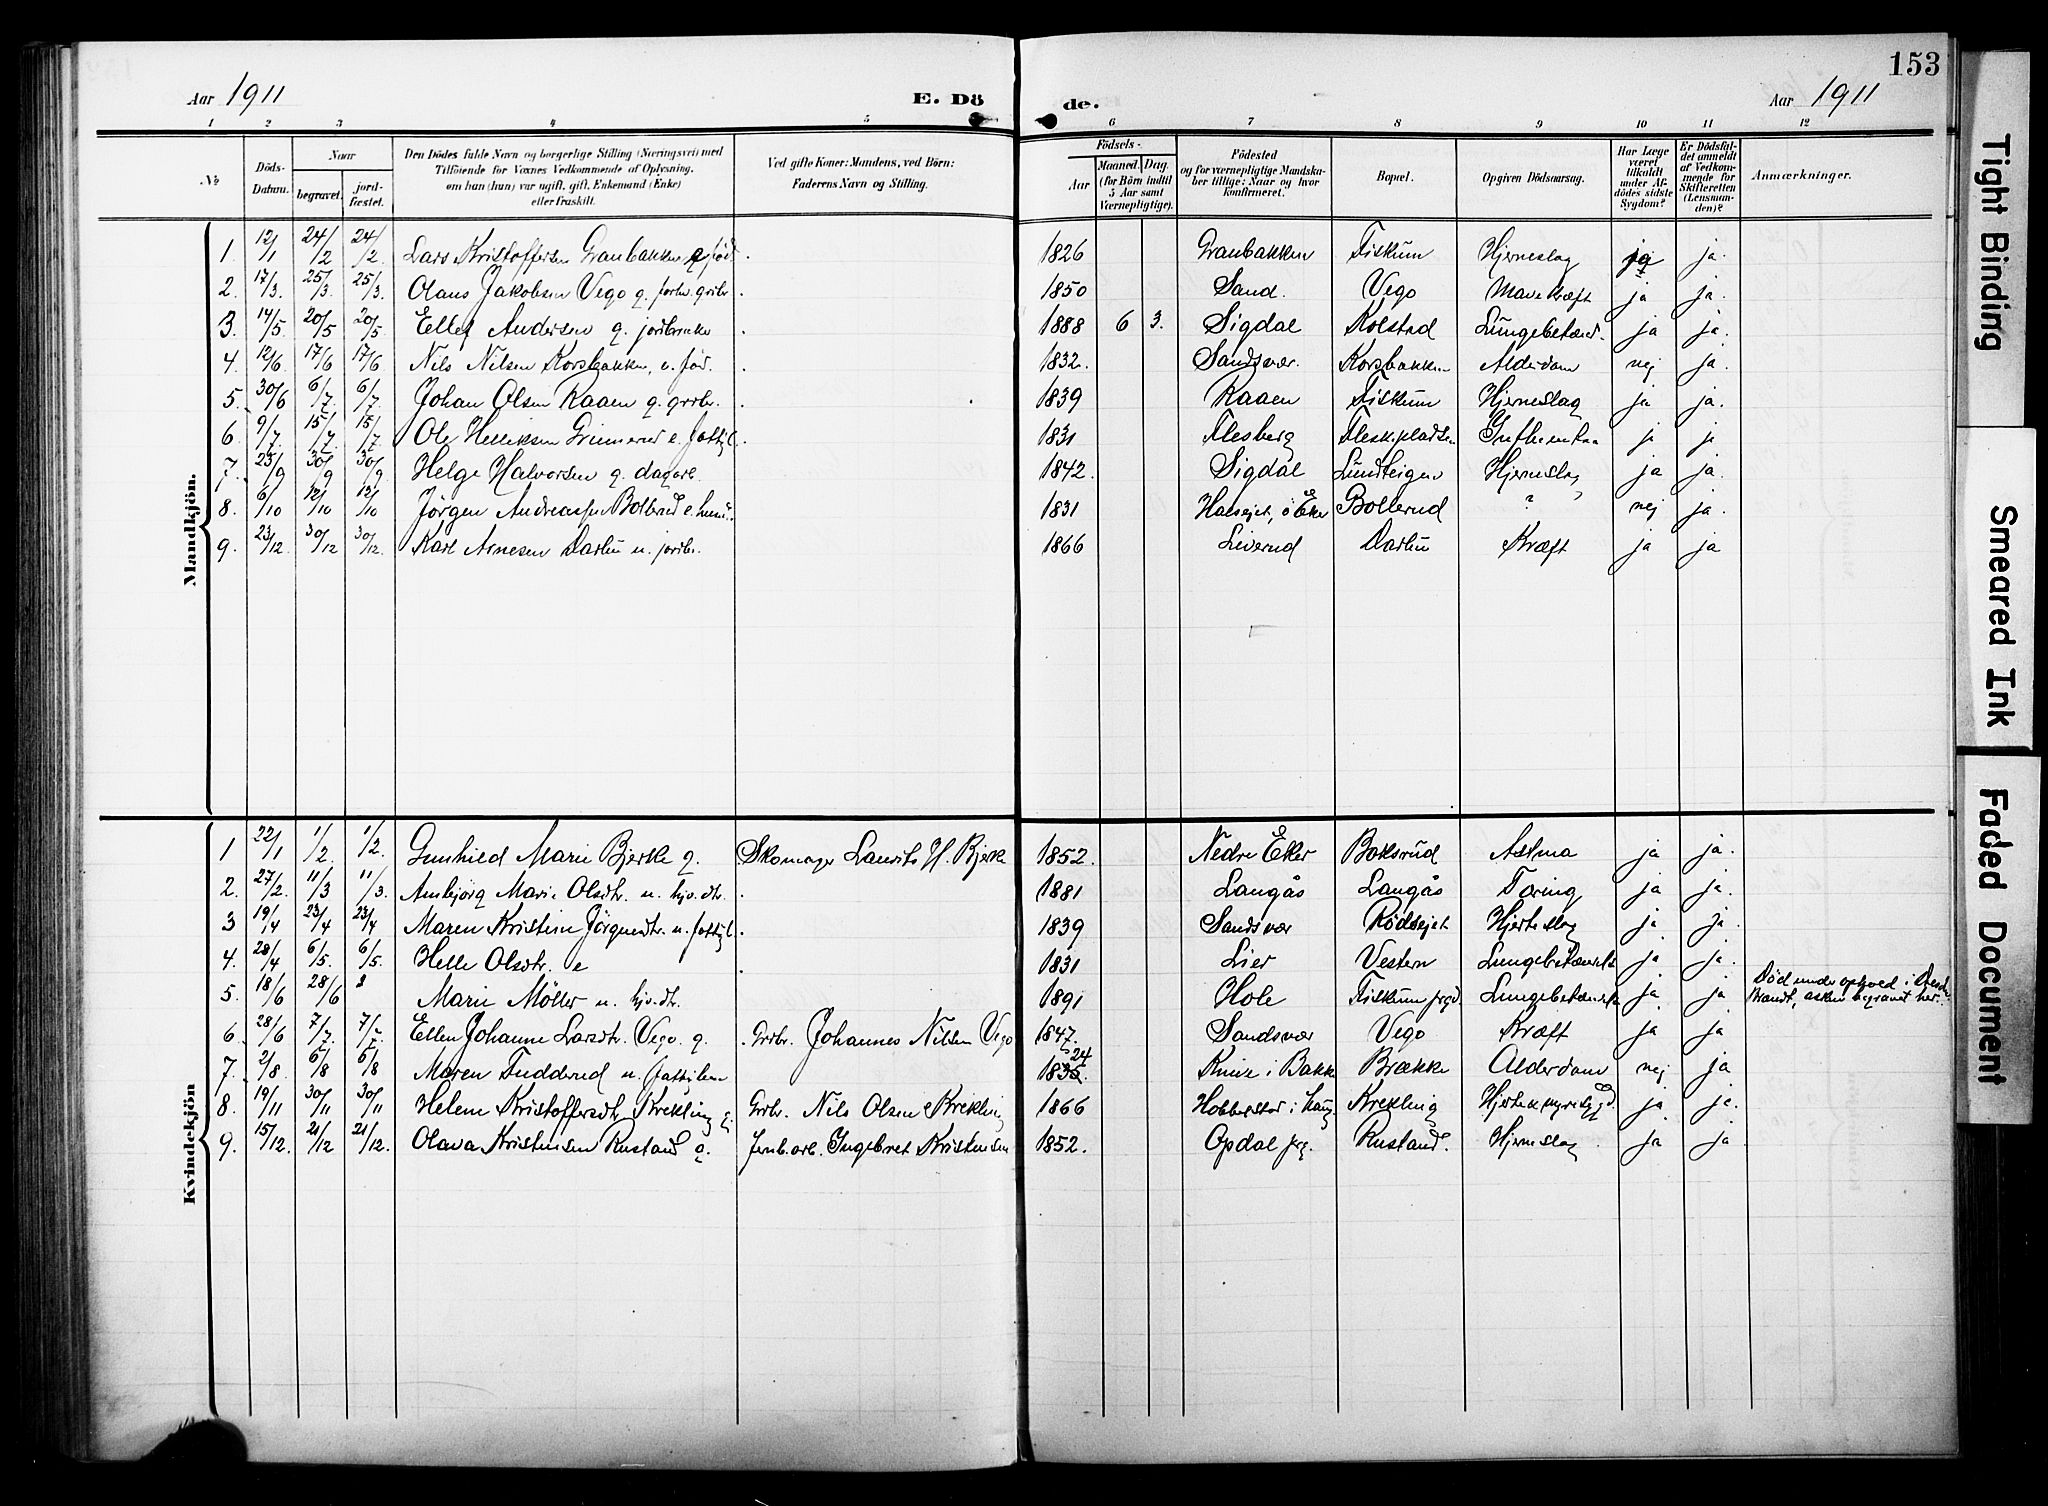 153
Aar 1911 E. Dö de. Aar 1911
1 2 3 4 5 6 7 8 9 10 11 12
№
Döds-Datum.
Naar
begravet.
jord-fæstet.
Den Dödes fulde Navn og borgerlige Stilling (Næringsvei) med
Tilföiende for Voxnes Vedkommende af Oplysning,
om han (hun) var ugift, gift, Enkemand (Enke)
eller fraskilt.
Ved gifte Koner: Mandens, ved Börn:
Faderens Navn og Stilling.
Födsels-
Aar
Maaned. Dag.
(for Börn indtil
5 Aar samt
Værnepligtige).
Födested
og for værnepligtige Mandska-
ber tillige: Naar og hvor
konfirmeret.
Bopæl.
Opgiven Dödsaarsag.
Har Læge
været
tilkaldt
under Af-
dödes sidste
Sygdom?
Er Dödsfal-
det anmeldt
af Vedkom-
mende for
Skifteretten
(Lensman-
den)?
Anmærkninger.
Mandkjön.
1. 12/1 24/2 24/2. Lars Kristoffersen Granbakken föd. 1826 Granbakken Fiskum Hjerneslag ja ja.
2. 17/3. 25/3. 25/3. Olaus Jakobsen Vego g. forhv. grbr. 1850 Sand. Vego Mavekræft ja ja.
3. 14/5 20/5 20/5 Ellef Andersen g. jordbruker 1888 6 3. Sigdal Kolstad Lungebetænd. ja ja.
4. 12/6 17/6 17/6 Nils Nilsen Korsbakken, u. föd. 1832. Sandsvær. Korsbakken Alderdom nej ja.
5. 30/6 6/7. 6/7. Johan Olsen Raaen g. grbr. 1839 Raaen Fiskum Hjerneslag ja ja.
6. 9/7. 15/7. 15/7 Ole Helliksen e. fattigl. 1831 Flesberg Flesk.pladsen ja ja
7. 23/9 30/9 30/9 Helge Halvorsen g. dagarb. 1842. Sigdal Lundteigen Hjerneslag ja ja.
8. 6/10 12/10 12/10 Jörgen Andreassen Bollerud e. 1831 ö Eker Bollerud ? nej ja.
9. 23/12. 30/12 30/12. Karl Arnesen Darbu u. jordbr. 1866 Liverud Darbu Kræft ja ja
Kvindekjön
1 22/1 1/2. 1/2. Gunhild Marie Bjerke g. Skomager Laurits H. Bjerke 1852. Nedre Eker Boksrud Astma ja ja.
2. 27/2. 11/3 11/3. Anbjörg Marie Olsdtr. u. hjv.dtr. 1881 Langås Langås Tæring ja ja.
3 19/4 23/4 23/4 Maren Kristine Jörgensdtr. u. fattigl. 1839 Sandsvær Rödsejet Hjerteslag ja ja.
4. 28/4 6/5. 6/5. Helle Olsdtr. e 1831 Lier Vestern Lungebetændelse ja ja.
5. 18/6 28/6 Marie Möller u. hjv.dtr. 1891 Hole Fiskum prgd. Lungebetændelse ja. ja Död under ophold i
Brandt, asken begravet her.
6. 28/6 7/7. 7/7. Ellen Johanne Larsdtr. Vego. g. Grbr. Johannes Nilsen Vego 1847. Sandsvær Vego Kræft ja ja
7. 2/8. 6/8 6/8 Maren Fudderud u. fattiglem 24 Knive i Bakke Brække Alderdom nej ja
8. 19/11 30/11 30/11 Helene Kristoffersdtr. Krekling g. Grbr. Nils Olsen Krekling 1866 Hobbelstad i Krekling ja ja.
9. 15/12. 21/12 21/12. Olava Kristensen Rustand g. Jernb.arb. Ingebret Kristensen 1852. Opdal prg. Rustand. Hjerneslag ja ja
Tight Binding
Smeared Ink
Faded Document